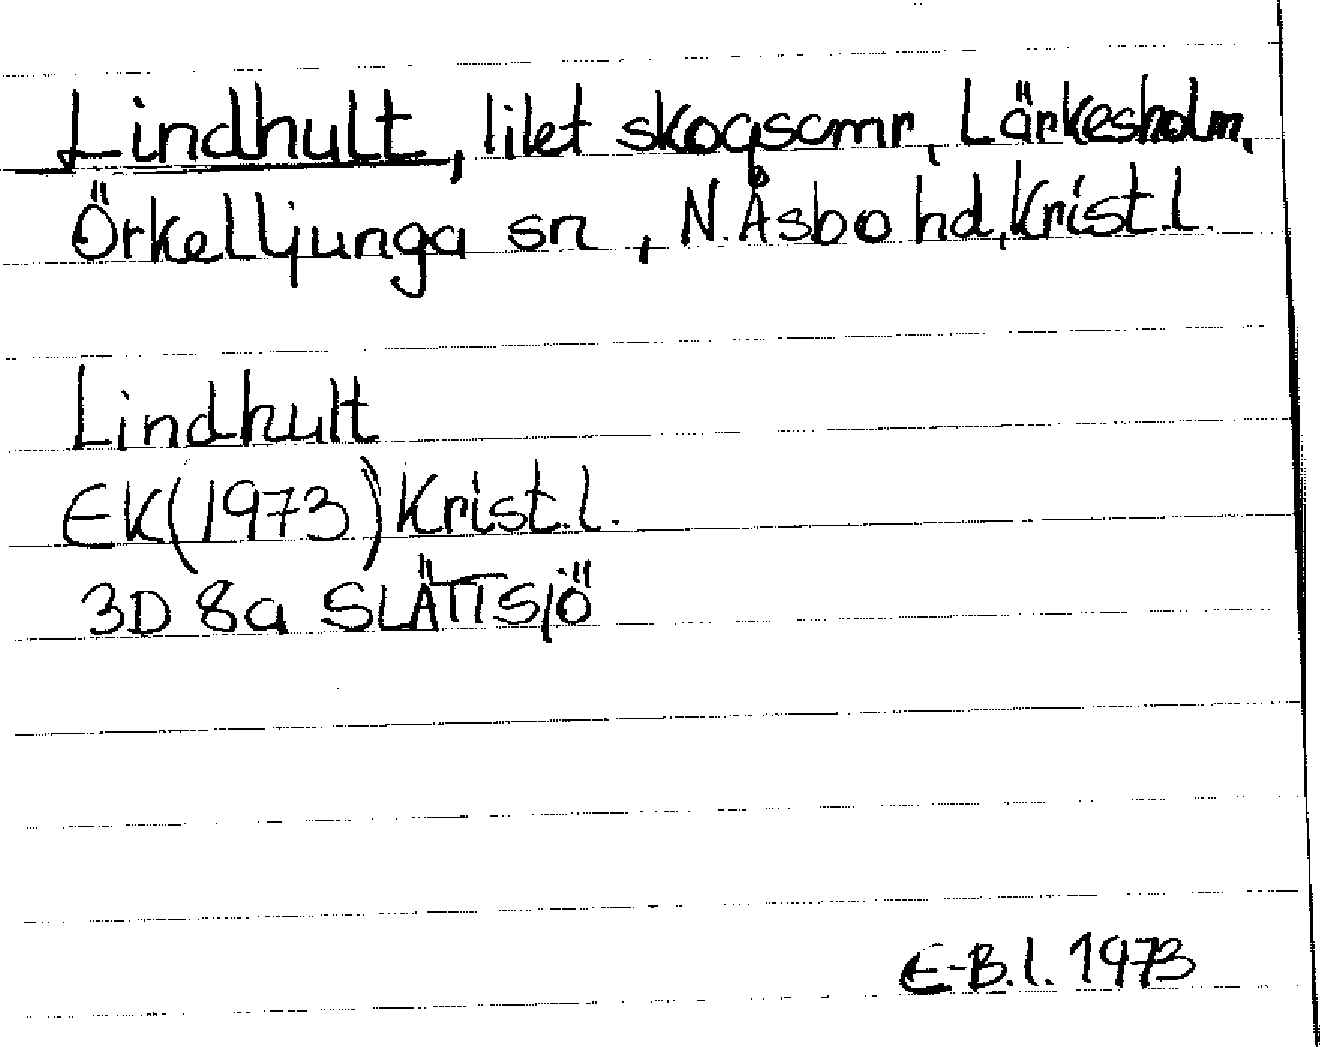 Lindhult, litet skogsomr, Lärkesholm,
Örkelljunga sn, N. Åsbo hd, Krist. l.
Lindhult
EK (1973) Krist. l.
3D 8a SLÄTTSJÖ
E-B. l. 1973